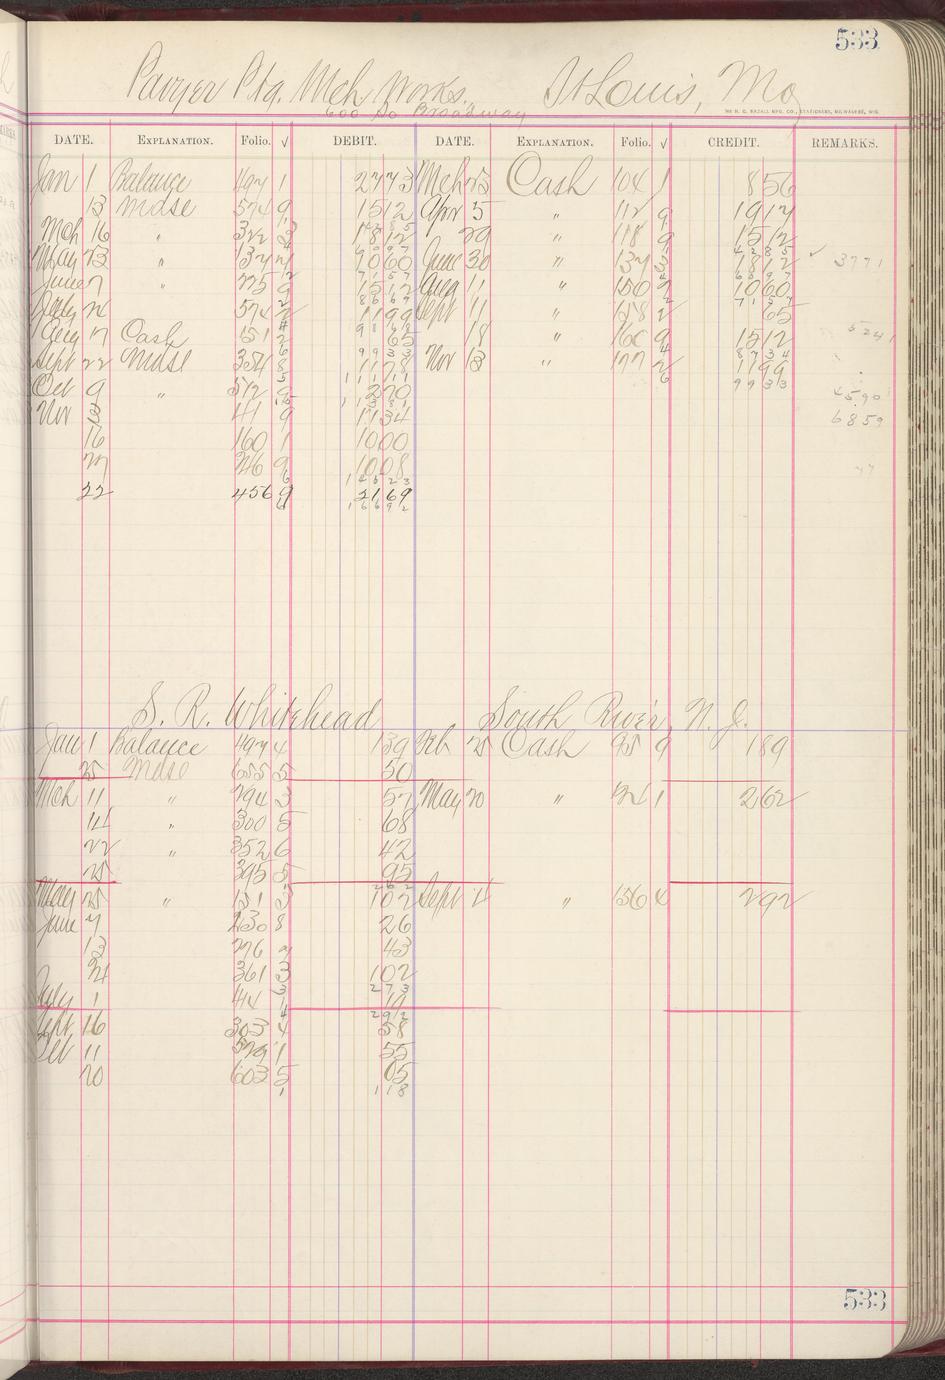 533
Ptg. Mch Works. St Louis, Mo
600 So Broadway
DATE. EXPLANATION. Folio. √ DEBIT. DATE. EXPLANATION. Folio. √ CREDIT. REMARKS.
Jan 1 Balance 497 1 2773 Mch 25 Cash 104 1 856
13 Mdse 574 9 1512 Apr 5 " 112 9 1917
Mch 16 " 322 3 1812 29 " 118 9 1512
May 23 " 137 1060 June 30 " 137 3 1812 3771
June 7 " 775 9 1512 Aug 11 " 150 1060
July 574 2 1199 Sept 11 " 158 2 65
Aug 17 Cash 151 2 65 18 " 160 9 1512
Sept 22 Mdse 354 8 1178 Nov 13 " 177 2 1199
Oct 9 " 512 9 270 4590
Nov 3 41 9 1134 6859
16 160 1 1000
246 9 1008
22 456 9 2169
1 6 6 9 2
S. R. Whitehead South River, N. J.
Jan 1 Balance 497 4 139 Feb 25 Cash 95 9 189
25 Mdse 655 5 50
Mch 11 " 294 3 57 May 20 " 1 262
14 " 300 5 68
22 " 352 6 42
25 395 5 95
2 6 2
May 25 " 131 3 102 Sept 4 " 156 4 292
June 7 230 8 26
13 276 7 43
24 361 3 102
2 7 3
July 1 414 1 19
2 9 2
Sept 16 303 4 58
Oct 11 529 1 55
20 603 5 05
1 1 1 8
533